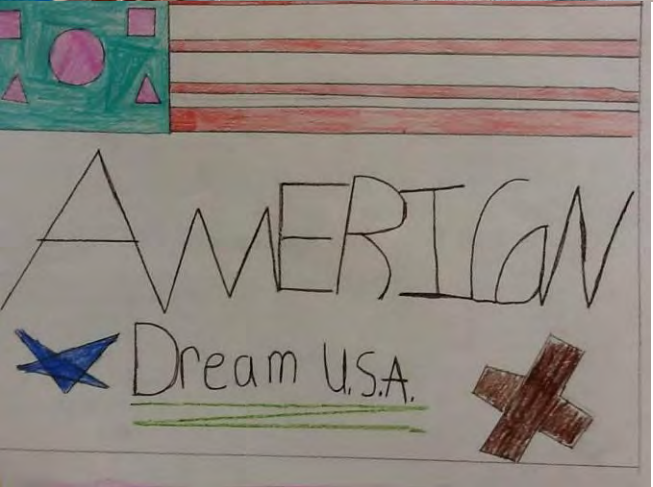 AMERICaN
Dream U.S.A.